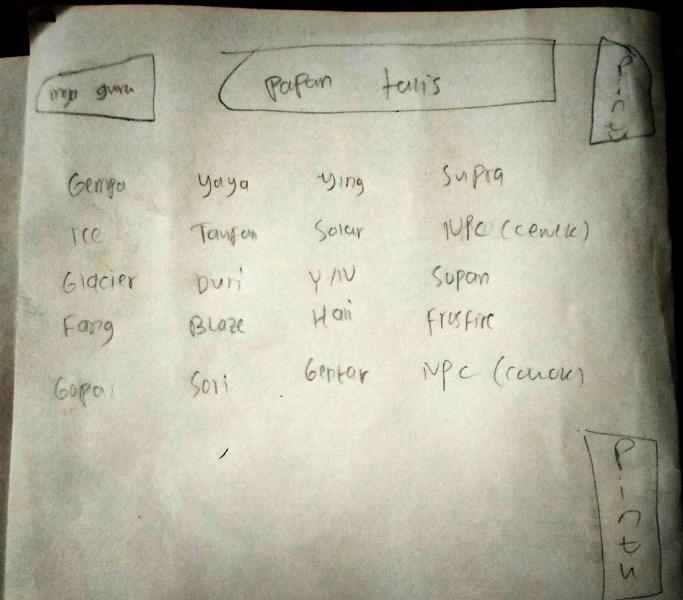 meja guru
papan tulis
Pintu
Gempa Yaya Ying Supra
Ice Taufan Solar NPC (cewek)
Glacier Duri Y/N Sopan
Fang Blaze Hali Frosfire
Gopal Sori Gentar NPC (cowok)
Pintu